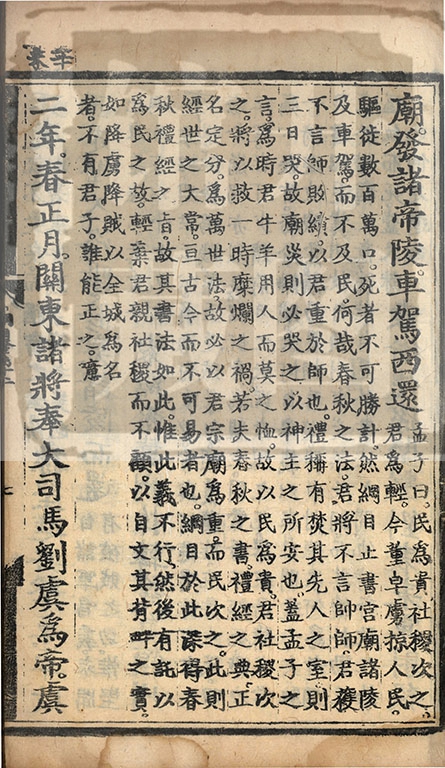 廟。發諸帝陵。車駕西還
孟子曰。民為貴社稷次之。
君為輕。今董卓虜掠人民。
驅徙數百萬口。死者不可勝計。然綱目止書宮廟諸陵
及車駕。而不及民。何哉春秋之法。君將不言帥師。君獲
不言師敗績。以君重於師也。禮稱有焚其先人之室則
三日哭。故廟災則必哭之。以神主之所安也。蓋孟子之
言。為時君牛羊用人而莫之恤。故以民為貴。君社稷次
之。將以救一時糜爛之禍。若夫春秋之書。禮經之典。正
名定分。為萬世法。故必以君宗廟為重。而民次之。此則
經世之大常。亘古今而不可易者也。綱目於此。深得春
秋禮經之旨。故其書法如此。惟此義不行。然後有託以
為民之故。輕棄君親社稷而不顧。以自文其背畔之實。
如降虜降賊以全城為名
者。不有君子。誰能正之。
二年。春正月。關東諸將奉大司馬劉虞為帝。虞